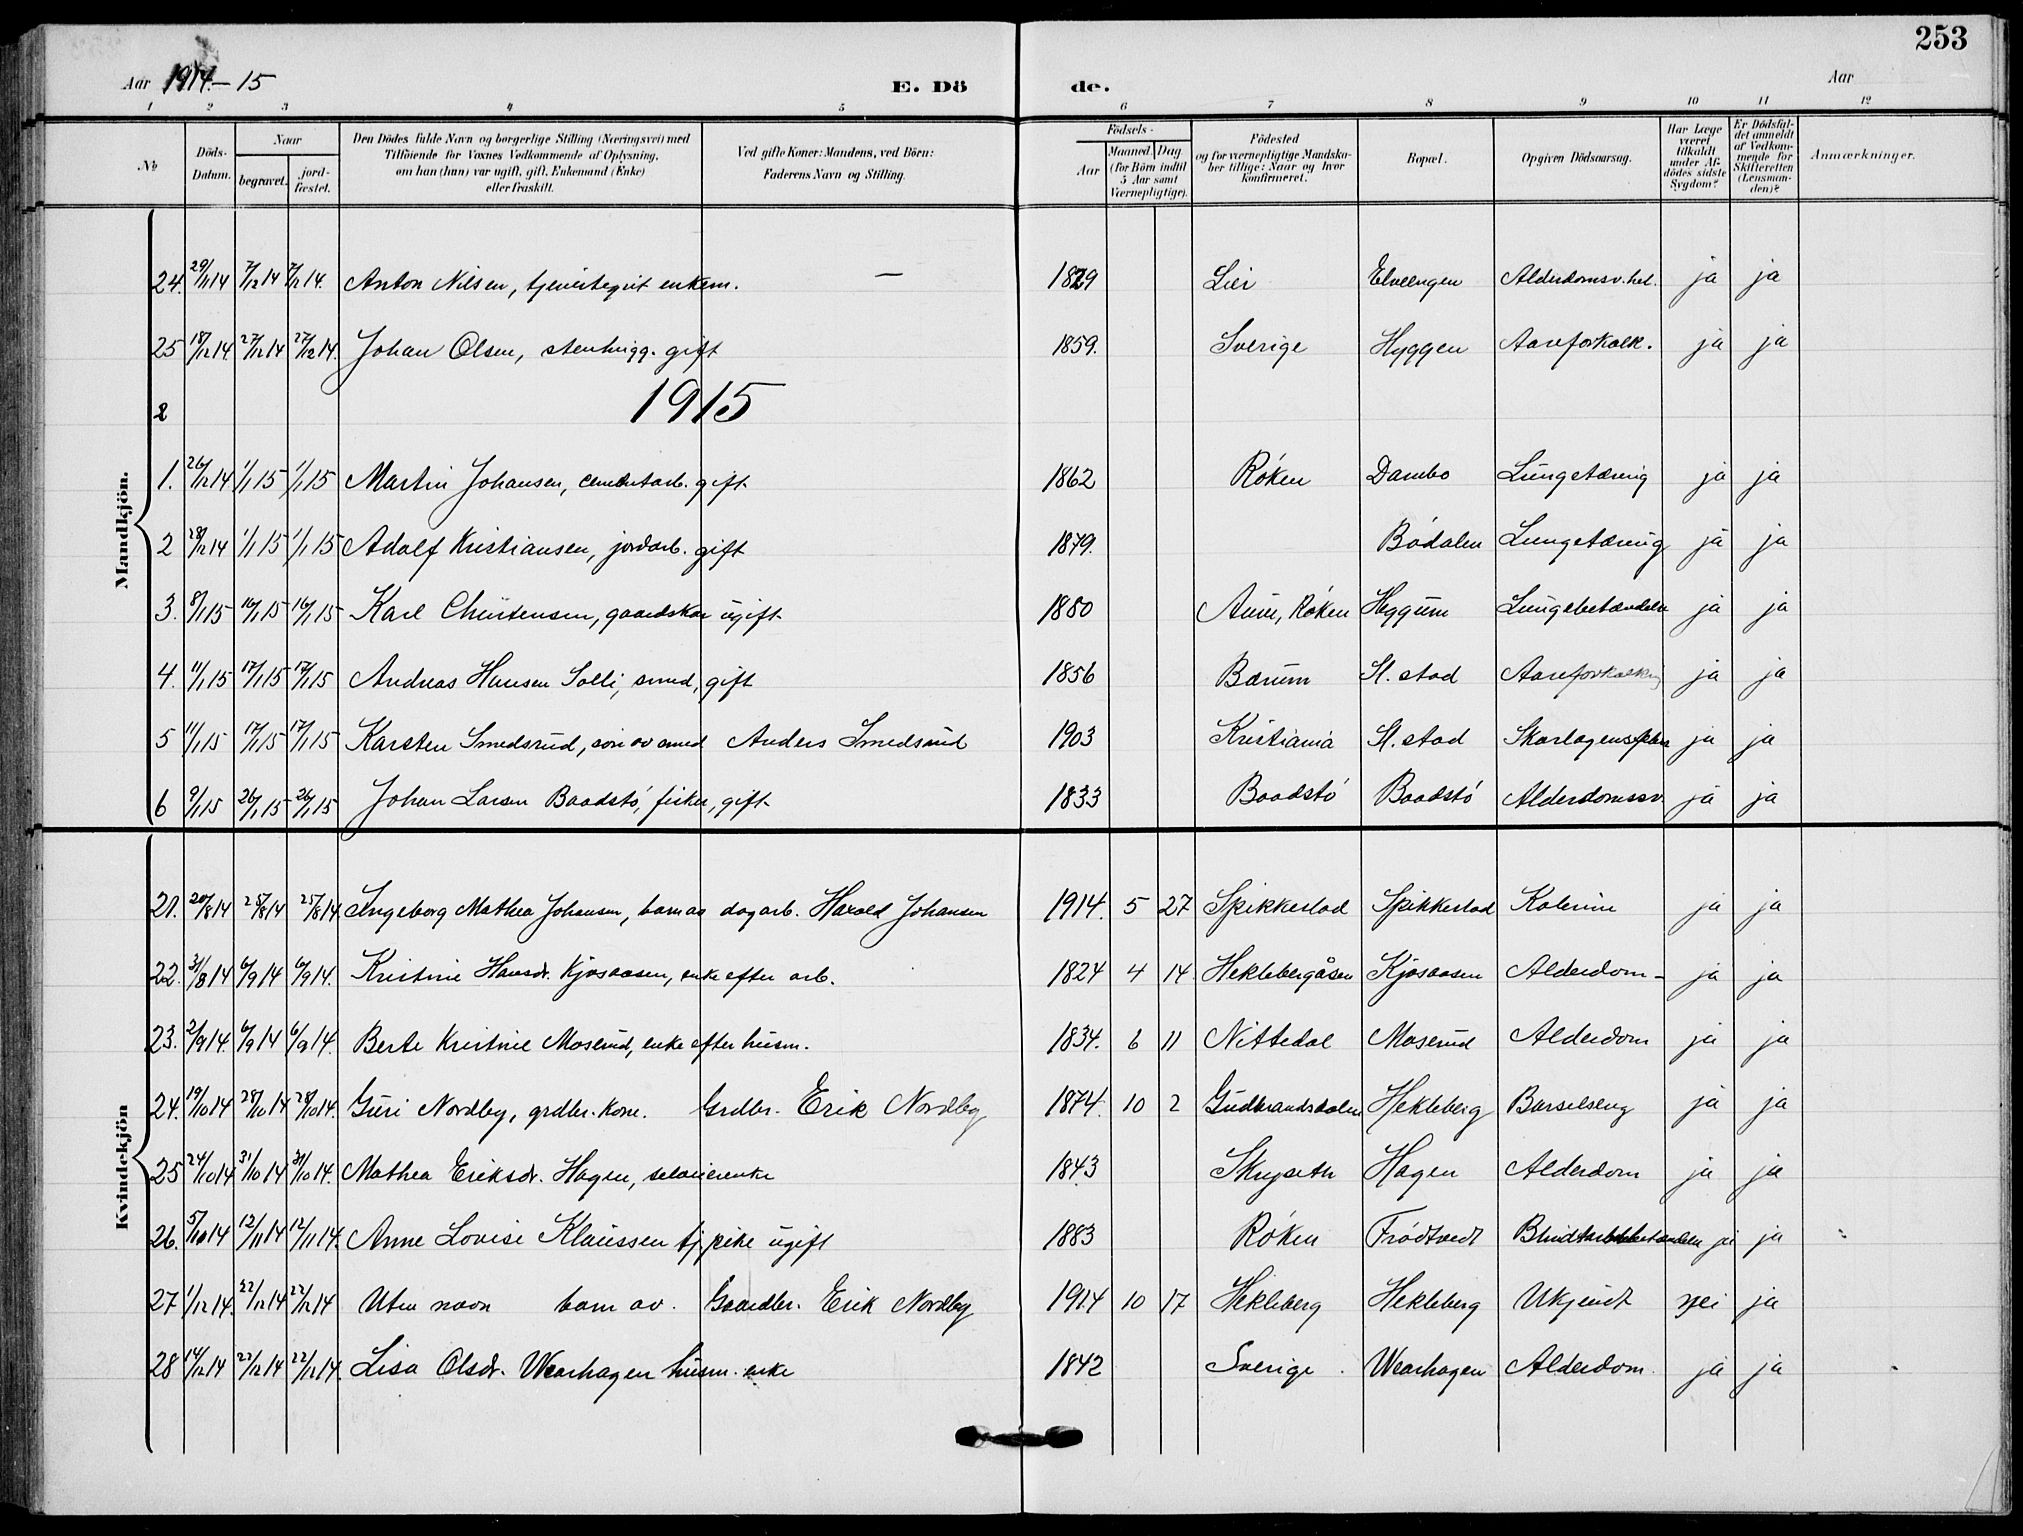 253
Aar 1914 – 15 E. Dö de. Aar
1 2 3 4 5 6 7 8 9 10 11 12
№
Döds-Datum.
Naar
begravet.
jord-fæstet.
Den Dödes fulde Navn og borgerlige Stilling (Næringsvei) med
Tilföiende for Voxnes Vedkommende af Oplysning,
om han (hun) var ugift, gift, Enkemand (Enke)
eller fraskilt.
Ved gifte Koner: Mandens, ved Börn:
Faderens Navn og Stilling.
Födsels-
Aar
Maaned. Dag.
(for Börn indtil
5 Aar samt
Værnepligtige).
Födested
og for værnepligtige Mandska-
ber tillige: Naar og hvor
konfirmeret.
Bopæl.
Opgiven Dödsaarsag.
Har Læge
været
tilkaldt
under Af-
dödes sidste
Sygdom?
Er Dödsfal-
det anmeldt
af Vedkom-
mende for
Skifteretten
(Lensman-
den)?
Anmærkninger.
Mandkjön.
24. 29/11 14 7/12 14 7/12 14. Anton Nilsen, enkem. — 1829 Lier Elveengen Alderdomsv.het. ja ja
25 18/12 14 27/12 14 27/12 14. Johan Olsen, stenhugg. gift 1859. Sverige Hyggen Aareforkalk. ja ja
2 1915
1. 26/12 14 1/1 15 1/1 15 Martin Johansen, cementarb. gift 1862 Röken Dambo Lungetæring ja ja
2 28/12 14 1/1 15 1/1 15 Adolf Kristiansen, jordarb. gift 1879. Bödalen Lungetæring ja ja
3. 8/1 15 16/1 15 16/1 15 Karl Christensen, gaardskar ugift 1880 Röken Heggum Lungebetændelse ja ja
4. 11/1 15 17/1 15 17/1 15 Andreas Hansen Solli, smed, gift 1856 Bærum Sl. stad Aareforkalkning ja ja
5 11/1 15 17/1 15 17/1 15 Karsten Smedsrud, søn av smed Anders Smedsrud 1903 Kristiania Sl. stad Skarlagensfeber ja ja
6 9/1 15 26/1 15 26/1 15 Johan Larsen Baadstö, fisker, gift 1833 Baadstö Baadstö Alderdomssv. ja ja
Kvindekjön
21. 20/8 14 25/8 14 25/8 14. Ingeborg Mathea Johansen, barn av dagarb. Harald Johansen 1914. 5 27 Spikkestad Spikkestad Kolerine ja ja
22. 31/8 14 6/9 14 6/9 14. Kristine Hansdr. Kjøsaasen, enke efter arb. 1824 4 14. Heklebergåsen Kjøsaasen Alderdom – ja ja
23. 2/9 14. 6/9 14 6/9 14. Berte Kristine Moserud, enke efter husm. 1834. 6 11 Nittedal Moserud Alderdom ja ja
24. 19/10 14 28/10 14 28/10 14. Guri Nordby, grdbr. kone. Grdbr. Erik Nordby 1874. 10 2 Gudbrandsdalen Hekleberg Barselseng ja ja
25 24/10 14 31/10 14 31/10 14. Mathea Eriksdr. Hagen, selveierenke 1843 Hagen Alderdom ja ja
26. 5/10 14 12/11 14 12/11 14. Anne Lovise Klaussen tj. pike ugift 1883 Röken Frödtvedt Blindtarmbetændelse ja ja
27 1/12 14. 22/12 14 22/12 14 Uten navn barn av. Gaardbr. Erik Nordby 1914 10 17 Hekleberg Hekleberg Ukjendt nei ja
28 14/12 14 22/12 14 22/12 14. Lisa Olsdr. Wearhagen husm. enke 1842 Sverige Wearhagen Alderdom. ja ja